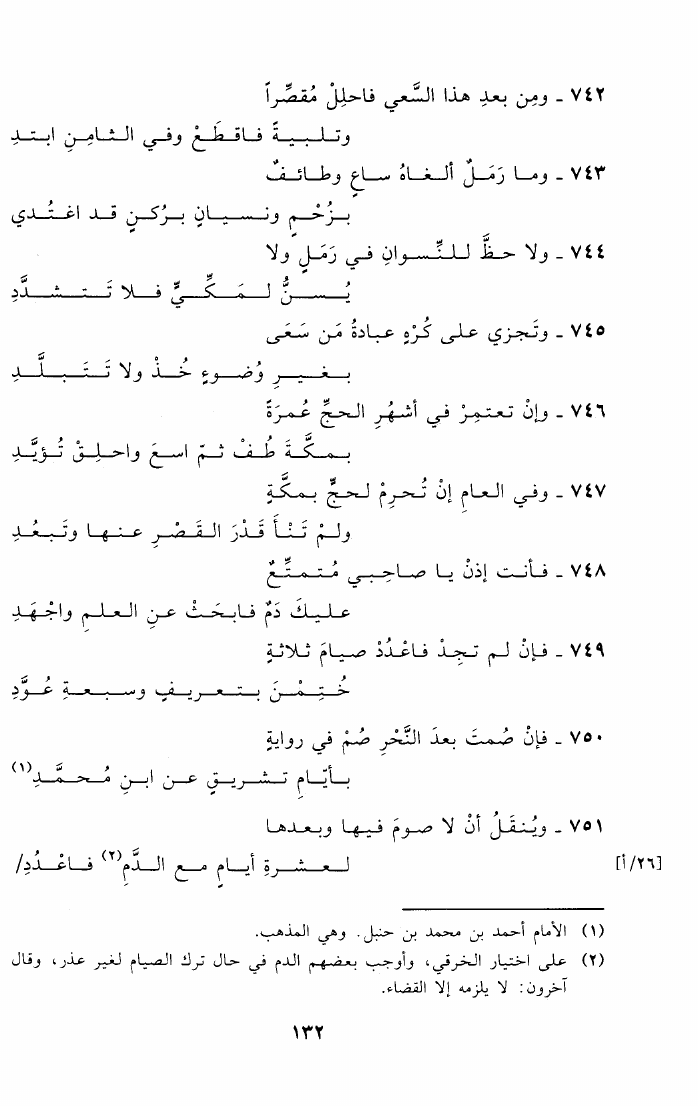 ٧٤٢ ـ ومِن بعدِ هذا السَّعي فاحلِلْ مُقصِّراً
وتلبيةً فاقطَعْ وفي الثامِنِ ابتدِ
٧٤٣ ـ وما رَمَلٌ ألغاهُ ساعٍ وطائفٌ
بزُحْمٍ ونسيانٍ برُكنٍ قد اغتُدي
٧٤٤ ـ ولا حظَّ للنِّسوانِ في رَمَلٍ ولا
يُسنُّ لمَكِّيٍّ فلا تَتشدَّدِ
٧٤٥ ـ وتَجزي على كُرْهٍ عبادةُ مَن سَعَى
بغيرِ وُضوءٍ خُذْ ولا تَتَبلَّدِ
٧٤٦ ـ وإنْ تعتمِرْ في أشهُرِ الحجِّ عُمرَةً
بمكَّةَ طُفْ ثمّ اسعَ واحلِقْ تُؤيَّدِ
٧٤٧ ـ وفي العامِ إنْ تُحرِمْ لحجٍّ بمكَّةٍ
ولمْ تَنْأَ قَدْرَ القَصْرِ عنها وتَبعُدِ
٧٤٨ ـ فأنت إذنْ يا صاحِبي مُتمتِّعٌ
عليكَ دَمٌ فابحَثْ عنِ العلمِ واجْهَدِ
٧٤٩ ـ فإنْ لم تجِدْ فاعْدُدْ صيامَ ثلاثةٍ
خُتِمْنَ بتعريفٍ وسبعةِ عُوَّدِ
٧٥٠ ـ فإنْ صُمتَ بعدَ النَّحْرِ صُمْ في روايةٍ
بأيّامِ تشريقٍ عن ابنِ مُحمَّدِ(١)
٧٥١ ـ ويُنقَلُ أنْ لا صومَ فيها وبعدها
لعشرةِ أيامٍ مع الدَّمِ(٢) فاعْدُدِ/ [٢٦/أ]
(١) الأمام أحمد بن محمد بن حنبل. وهي المذهب.
(٢) على اختيار الخرقي، وأوجب بعضهم الدم في حال ترك الصيام لغير عذر، وقال
آخرون: لا يلزمه إلا القضاء.
١٣٢